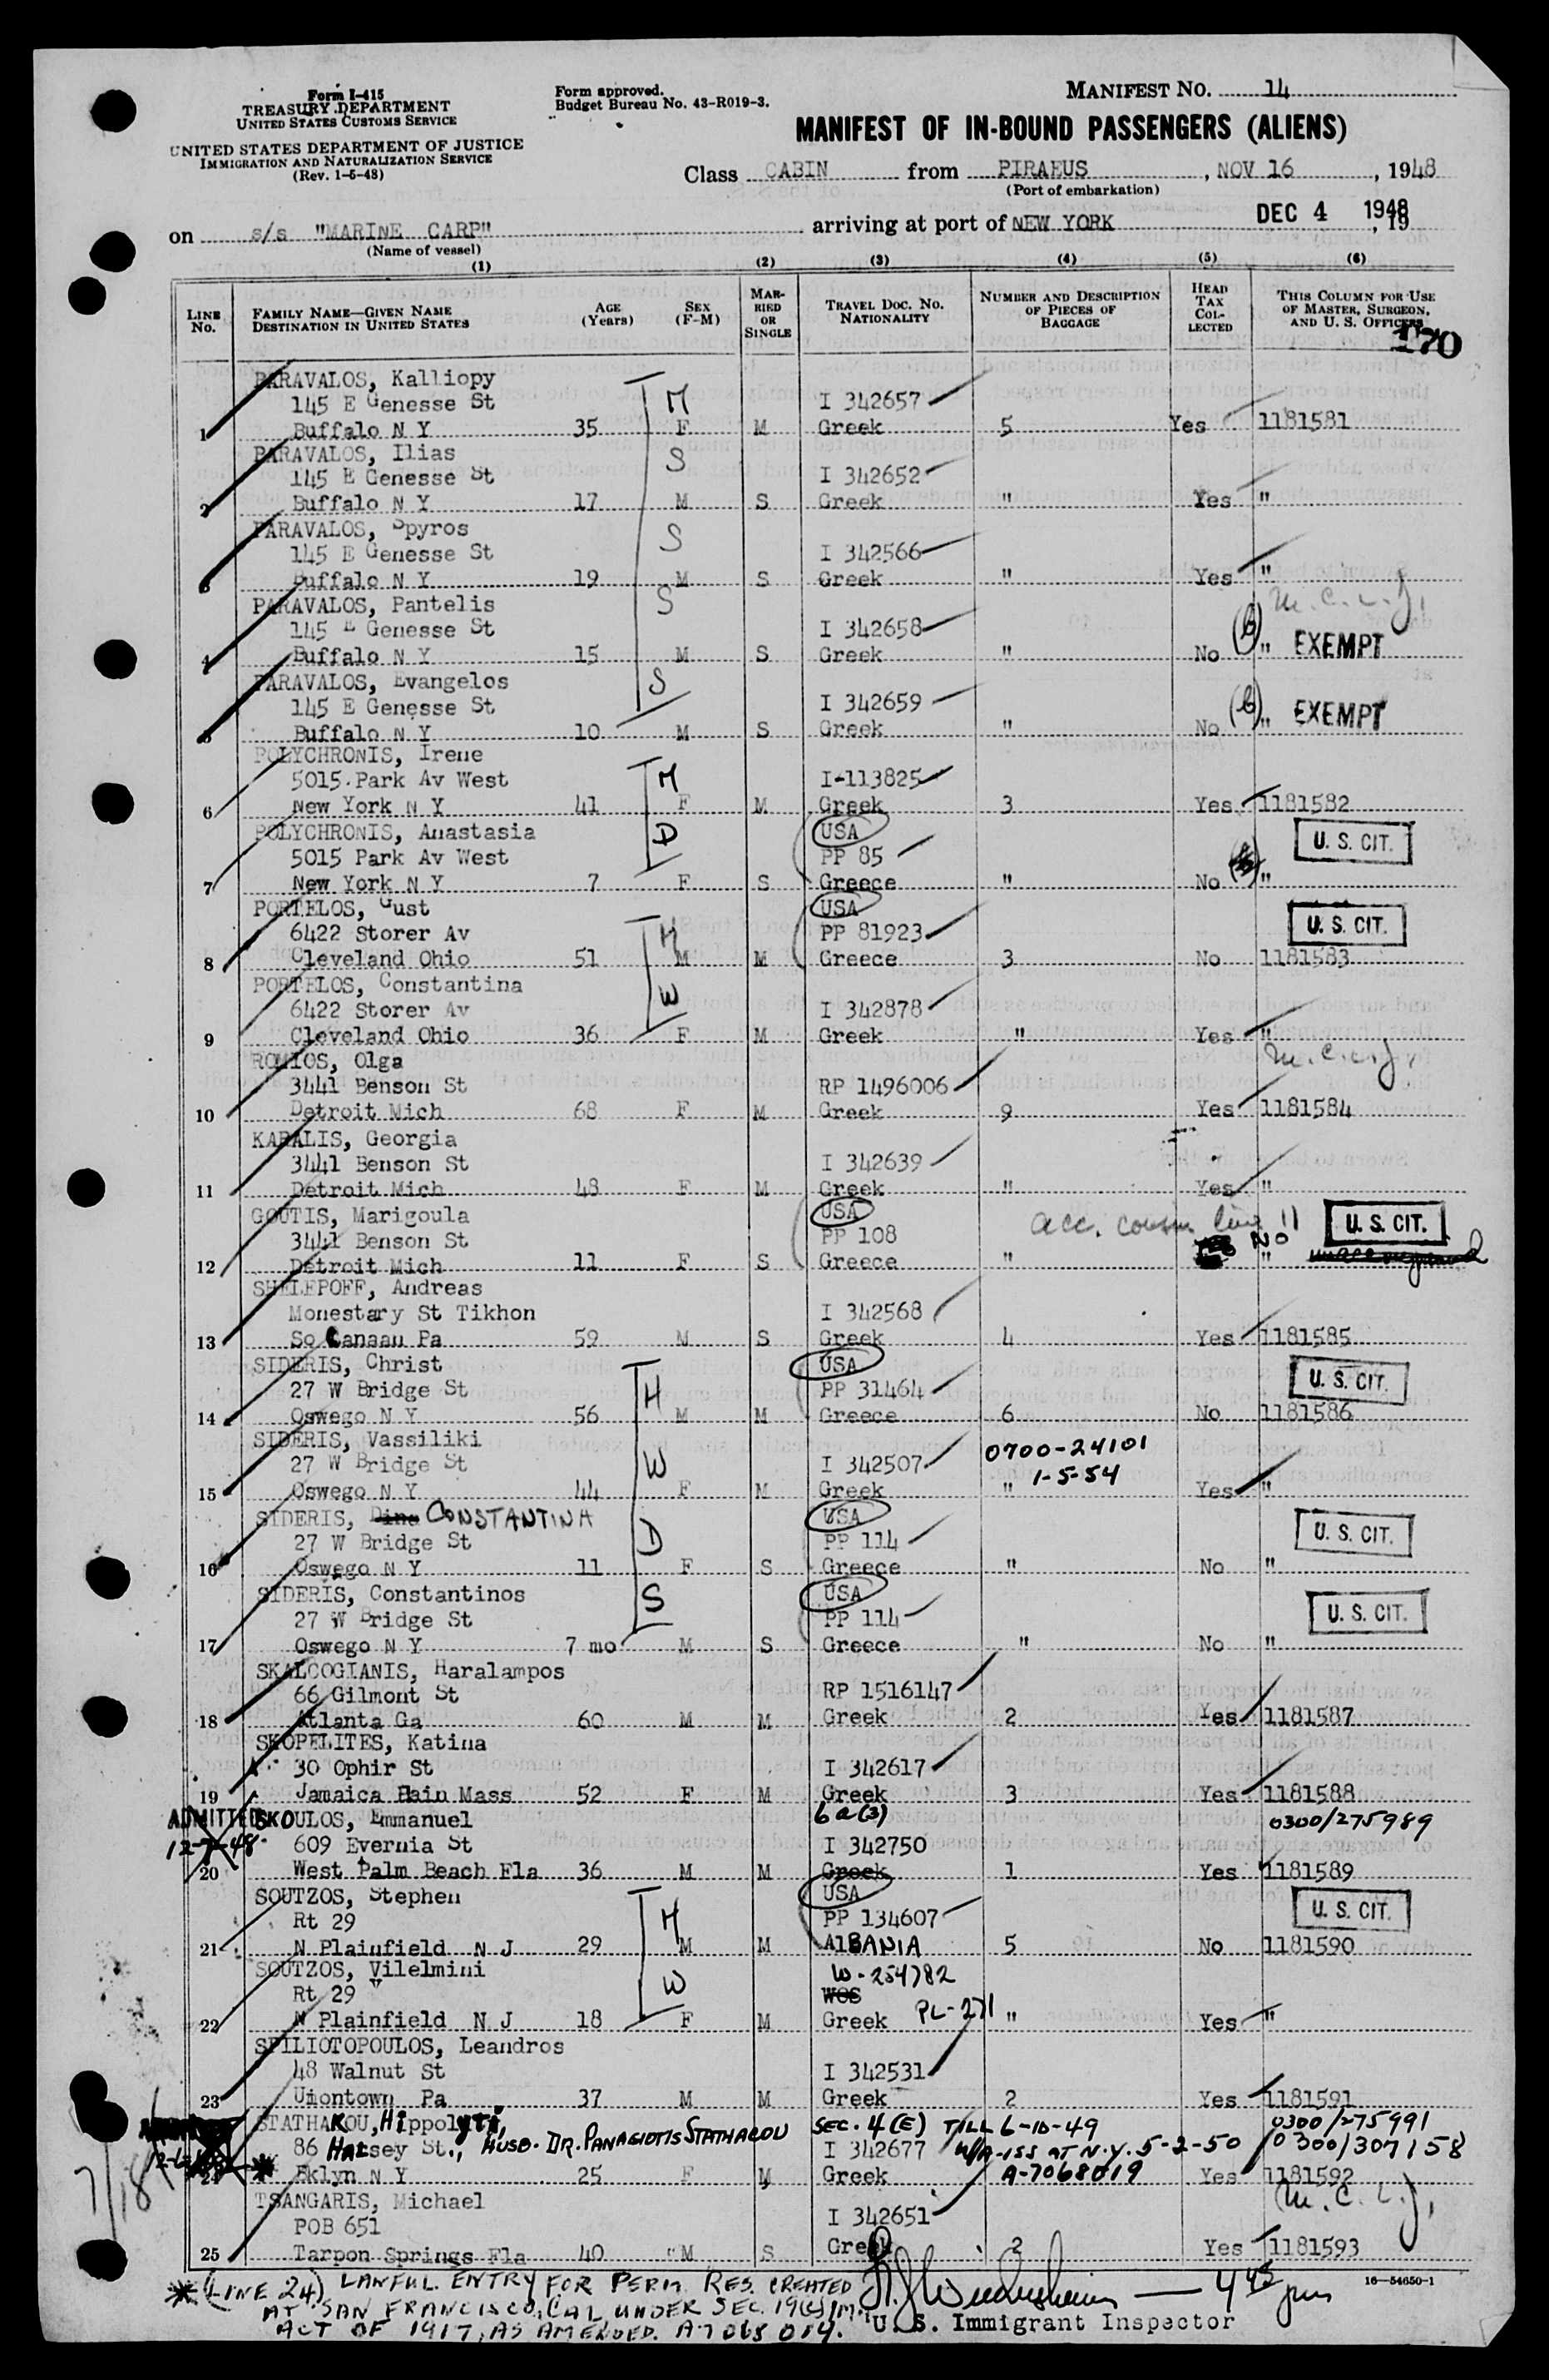 Form I-415
TREASURY DEPARTMENT
UNITED STATES CUSTOMS SERVICE
UNITED STATES DEPARTMENT OF JUSTICE
IMMIGRATION AND NATURALIZATION SERVICE
(Rev. 1-5-48)
Form approved.
Budget Bureau No. 43-R019-3.
MANIFEST NO. 14
MANIFEST OF IN-BOUND PASSENGERS (ALIENS)
Class CABIN from PIRAEUS, NOV 16, 1948
(Port of embarkation)
on s/s "MARINE CARP" arriving at port of NEW YORK DEC 4 1948, 19
(Name of vessel)
(1) (2) (3) (4) (5) (6)
LINE No. FAMILY NAME—GIVEN NAME DESTINATION IN UNITED STATES AGE (Years) SEX (F-M) MARRIED OR SINGLE TRAVEL DOC. NO. NATIONALITY NUMBER AND DESCRIPTION OF PIECES OF BAGGAGE HEAD TAX COLLECTED THIS COLUMN FOR USE OF MASTER, SURGEON, AND U. S. OFFICERS
170
PARAVALOS, Kalliopy M
145 E Genesse St I 342657
1 Buffalo N Y 35 F M Greek 5 Yes 1181581
PARAVALOS, Ilias S
145 E Genesse St I 342652
2 Buffalo N Y 17 M S Greek " Yes "
PARAVALOS, Spyros S
145 E Genesse St I 342566
3 Buffalo N Y 19 M S Greek " Yes "
PARAVALOS, Pantelis S
145 E Genesse St I 342658
4 Buffalo N Y 15 M S Greek " No (b) " EXEMPT
PARAVALOS, Evangelos S
145 E Genesse St I 342659
5 Buffalo N Y 10 M S Greek " No (b) " EXEMPT
POLYCHRONIS, Irene M
5015 Park Av West I-113825
6 New York N Y 41 F M Greek 3 Yes 1181582
POLYCHRONIS, Anastasia D USA U. S. CIT.
5015 Park Av West PP 85
7 New York N Y 7 F S Greece " No "
PORTELOS, Gust H USA U. S. CIT.
6422 Storer Av PP 81923
8 Cleveland Ohio 51 M M Greece 3 No 1181583
PORTELOS, Constantina W
6422 Storer Av I 342878
9 Cleveland Ohio 36 F M Greek " Yes "
ROMIOS, Olga
3441 Benson St RP 1496006
10 Detroit Mich 68 F M Greek 9 Yes 1181584
KABALIS, Georgia
3441 Benson St I 342639
11 Detroit Mich 48 F M Greek " Yes "
GOUTIS, Marigoula USA acc. cousin line 11 U. S. CIT.
3441 Benson St PP 108 NO
12 Detroit Mich 11 F S Greece " "
SHELEPOFF, Andreas
Monestary St Tikhon I 342568
13 So Canaan Pa 59 M S Greek 4 Yes 1181585
SIDERIS, Christ H USA U. S. CIT.
27 W Bridge St PP 31464
14 Oswego N Y 56 M M Greece 6 No 1181586
SIDERIS, Vassiliki W 0700-24101
27 W Bridge St I 342507 1-5-54
15 Oswego N Y 44 F M Greek " Yes "
SIDERIS, Dina CONSTANTINA D USA U. S. CIT.
27 W Bridge St PP 114
16 Oswego N Y 11 F S Greece " No "
SIDERIS, Constantinos S USA U. S. CIT.
27 W Bridge St PP 114
17 Oswego N Y 7 mo M S Greece " No "
SKALCOGIANIS, Haralampos
66 Gilmont St RP 1516147
18 Atlanta Ga 60 M M Greek 2 Yes 1181587
SKOPELITES, Katina
30 Ophir St I 342617
19 Jamaica Plain Mass 52 F M Greek 3 Yes 1181588
ADMITTED SKOULOS, Emmanuel 6a(3) 0300/275989
12-7-48 609 Evernia St I 342750
20 West Palm Beach Fla 36 M M Greek 1 Yes 1181589
SOUTZOS, Stephen H USA U. S. CIT.
Rt 29 PP 134607
21 N Plainfield N J 29 M M AlBANIA 5 No 1181590
SOUTZOS, Vilelmini W W-254782
Rt 29 WOS
22 N Plainfield N J 18 F M Greek PL-271 " Yes "
SPILIOTOPOULOS, Leandros
48 Walnut St I 342531
23 Uiontown Pa 37 M M Greek 2 Yes 1181591
STATHAKOU, Hippolyti, SEC. 4(E) TILL 6-10-49 0300/275991
86 Halsey St., HUSB. DR. PANAGIOTIS STATHACOU I 342677 W/A-155 AT N.Y. 5-2-50 0300/307158
24 Bklyn N Y 25 F M Greek A-7068019 Yes 1181592
TSANGARIS, Michael
POB 651 I 342651
25 Tarpon Springs Fla 40 M S Greek 2 Yes 1181593
* (LINE 24) LAWFUL ENTRY FOR PERM. RES. CREATED
AT SAN FRANCISCO, CAL UNDER SEC. 19(c) IM.
ACT OF 1917, AS AMENDED. A7068019.
4 45 pm
16—54650-1
U. S. Immigrant Inspector